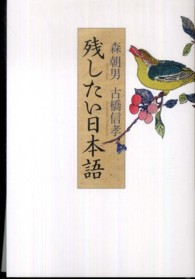 森 朝男
古橋信孝
残したい日本語